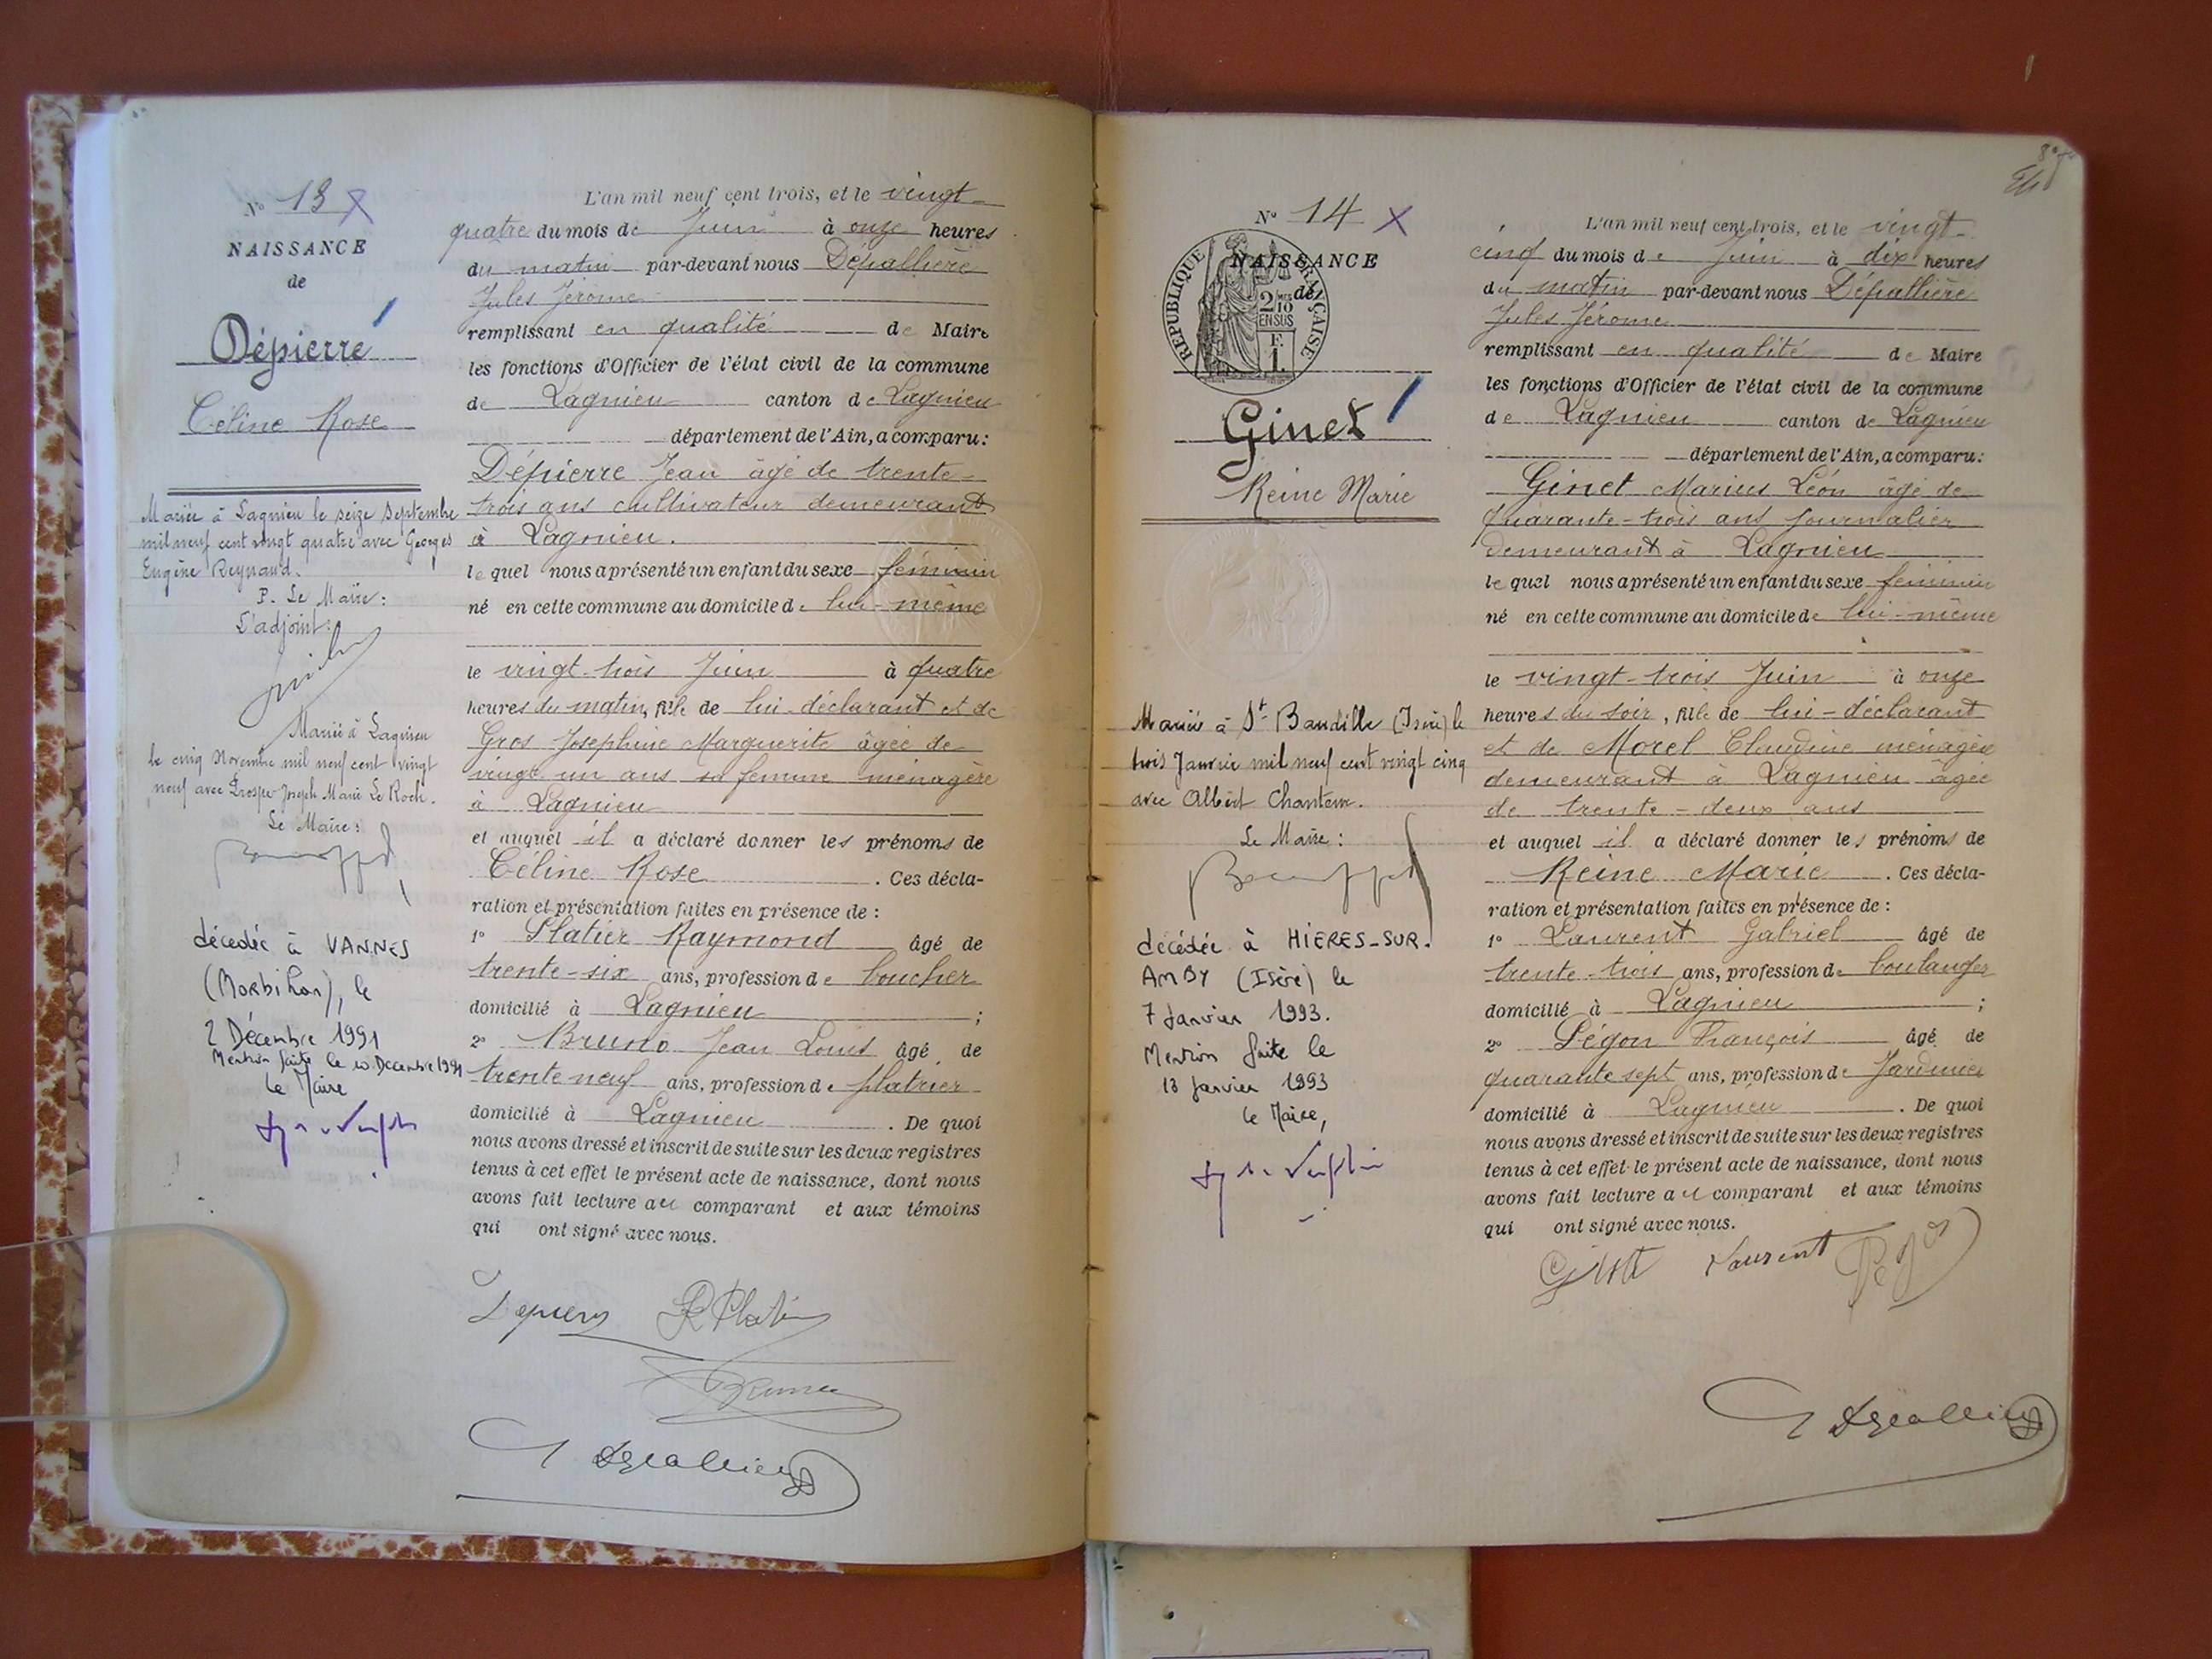 N° 13 X
NAISSANCE
de
Dépierre
Céline Rose
Mariée à Lagnieu le seize Septembre
mil neuf cent vingt quatre avec Georges
Eugène Reynaud.
P. Le Maire:
L'adjoint:
Mariée à Lagnieu
le cinq Novembre mil neuf cent vingt
neuf avec Prosper Joseph Marie Le Roch.
Le Maire:
décédée à VANNES
(Morbihan), le
2 Décembre 1991
Mention faite le 10 Décembre 1991
Le Maire
L'an mil neuf cent trois, et le vingt-
quatre du mois de Juin à onze heures
du matin par-devant nous Dépallière
Jules Jérome
remplissant en qualité de Maire
les fonctions d'Officier de l'état civil de la commune
de Lagnieu canton de Lagnieu
département de l'Ain, a comparu:
Dépierre Jean âgé de trente-
trois ans cultivateur demeurant
à Lagnieu.
lequel nous a présenté un enfant du sexe féminin
né en cette commune au domicile de lui-même
le vingt-trois Juin à quatre
heures du matin, fille de lui-déclarant et de
Gros Josephine Marguerite âgée de
vingt un ans sa femme ménagère
à Lagnieu
et auquel il a déclaré donner les prénoms de
Céline Rose . Ces décla-
ration et présentation faites en présence de :
1° Platier Raymond âgé de
trente-six ans, profession de boucher
domicilié à Lagnieu ;
2° Bruno Jean Louis âgé de
trente neuf ans, profession de platrier
domicilié à Lagnieu . De quoi
nous avons dressé et inscrit de suite sur les deux registres
tenus à cet effet le présent acte de naissance, dont nous
avons fait lecture au comparant et aux témoins
qui ont signé avec nous.
N° 14 X
NAISSANCE
de
REPUBLIQUE FRANÇAISE
2/10
EN SUS
F.
1.
Ginet
Reine Marie
Mariée à St Baudille (Isère) le
trois Janvier mil neuf cent vingt cinq
avec Albert
Le Maire :
décédée à HIERES-SUR-
AMBY (Isère) le
7 Janvier 1993.
Mention faite le
13 Janvier 1993
Le Maire,
L'an mil neuf cent trois, et le vingt-
cinq du mois de Juin à dix heures
du matin par-devant nous Dépallière
Jules Jérome
remplissant en qualité de Maire
les fonctions d'Officier de l'état civil de la commune
de Lagnieu canton de Lagnieu
département de l'Ain, a comparu:
Ginet Marius Léon âgé de
quarante-trois ans journalier
demeurant à Lagnieu
lequel nous a présenté un enfant du sexe féminin
né en cette commune au domicile de lui-même
le vingt-trois Juin à onze
heures du soir, fille de lui-déclarant
et de Morel Claudine ménagère
demeurant à Lagnieu âgée
de trente-deux ans
et auquel il a déclaré donner les prénoms de
Reine Marie . Ces décla-
ration et présentation faites en présence de :
1° Laurent Gabriel âgé de
trente-trois ans, profession de boulanger
domicilié à Lagnieu ;
2° Pégon François âgé de
quarante sept ans, profession de Jardinier
domicilié à Lagnieu . De quoi
nous avons dressé et inscrit de suite sur les deux registres
tenus à cet effet le présent acte de naissance, dont nous
avons fait lecture au comparant et aux témoins
qui ont signé avec nous.
Laurent